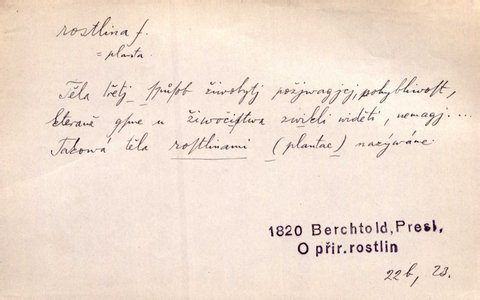 rostlina f.
= planta.
Těla třetj spůsob žiwobytj požjwagjcj, pohybliwost,
kterauž gsme u žiwočišstwa zwikli widěti, nemagj....
Taková těla rostlinami (plantae) nazýwáme
1820 Berchtold, Presl,
O přir. rostlin
22b, 23.